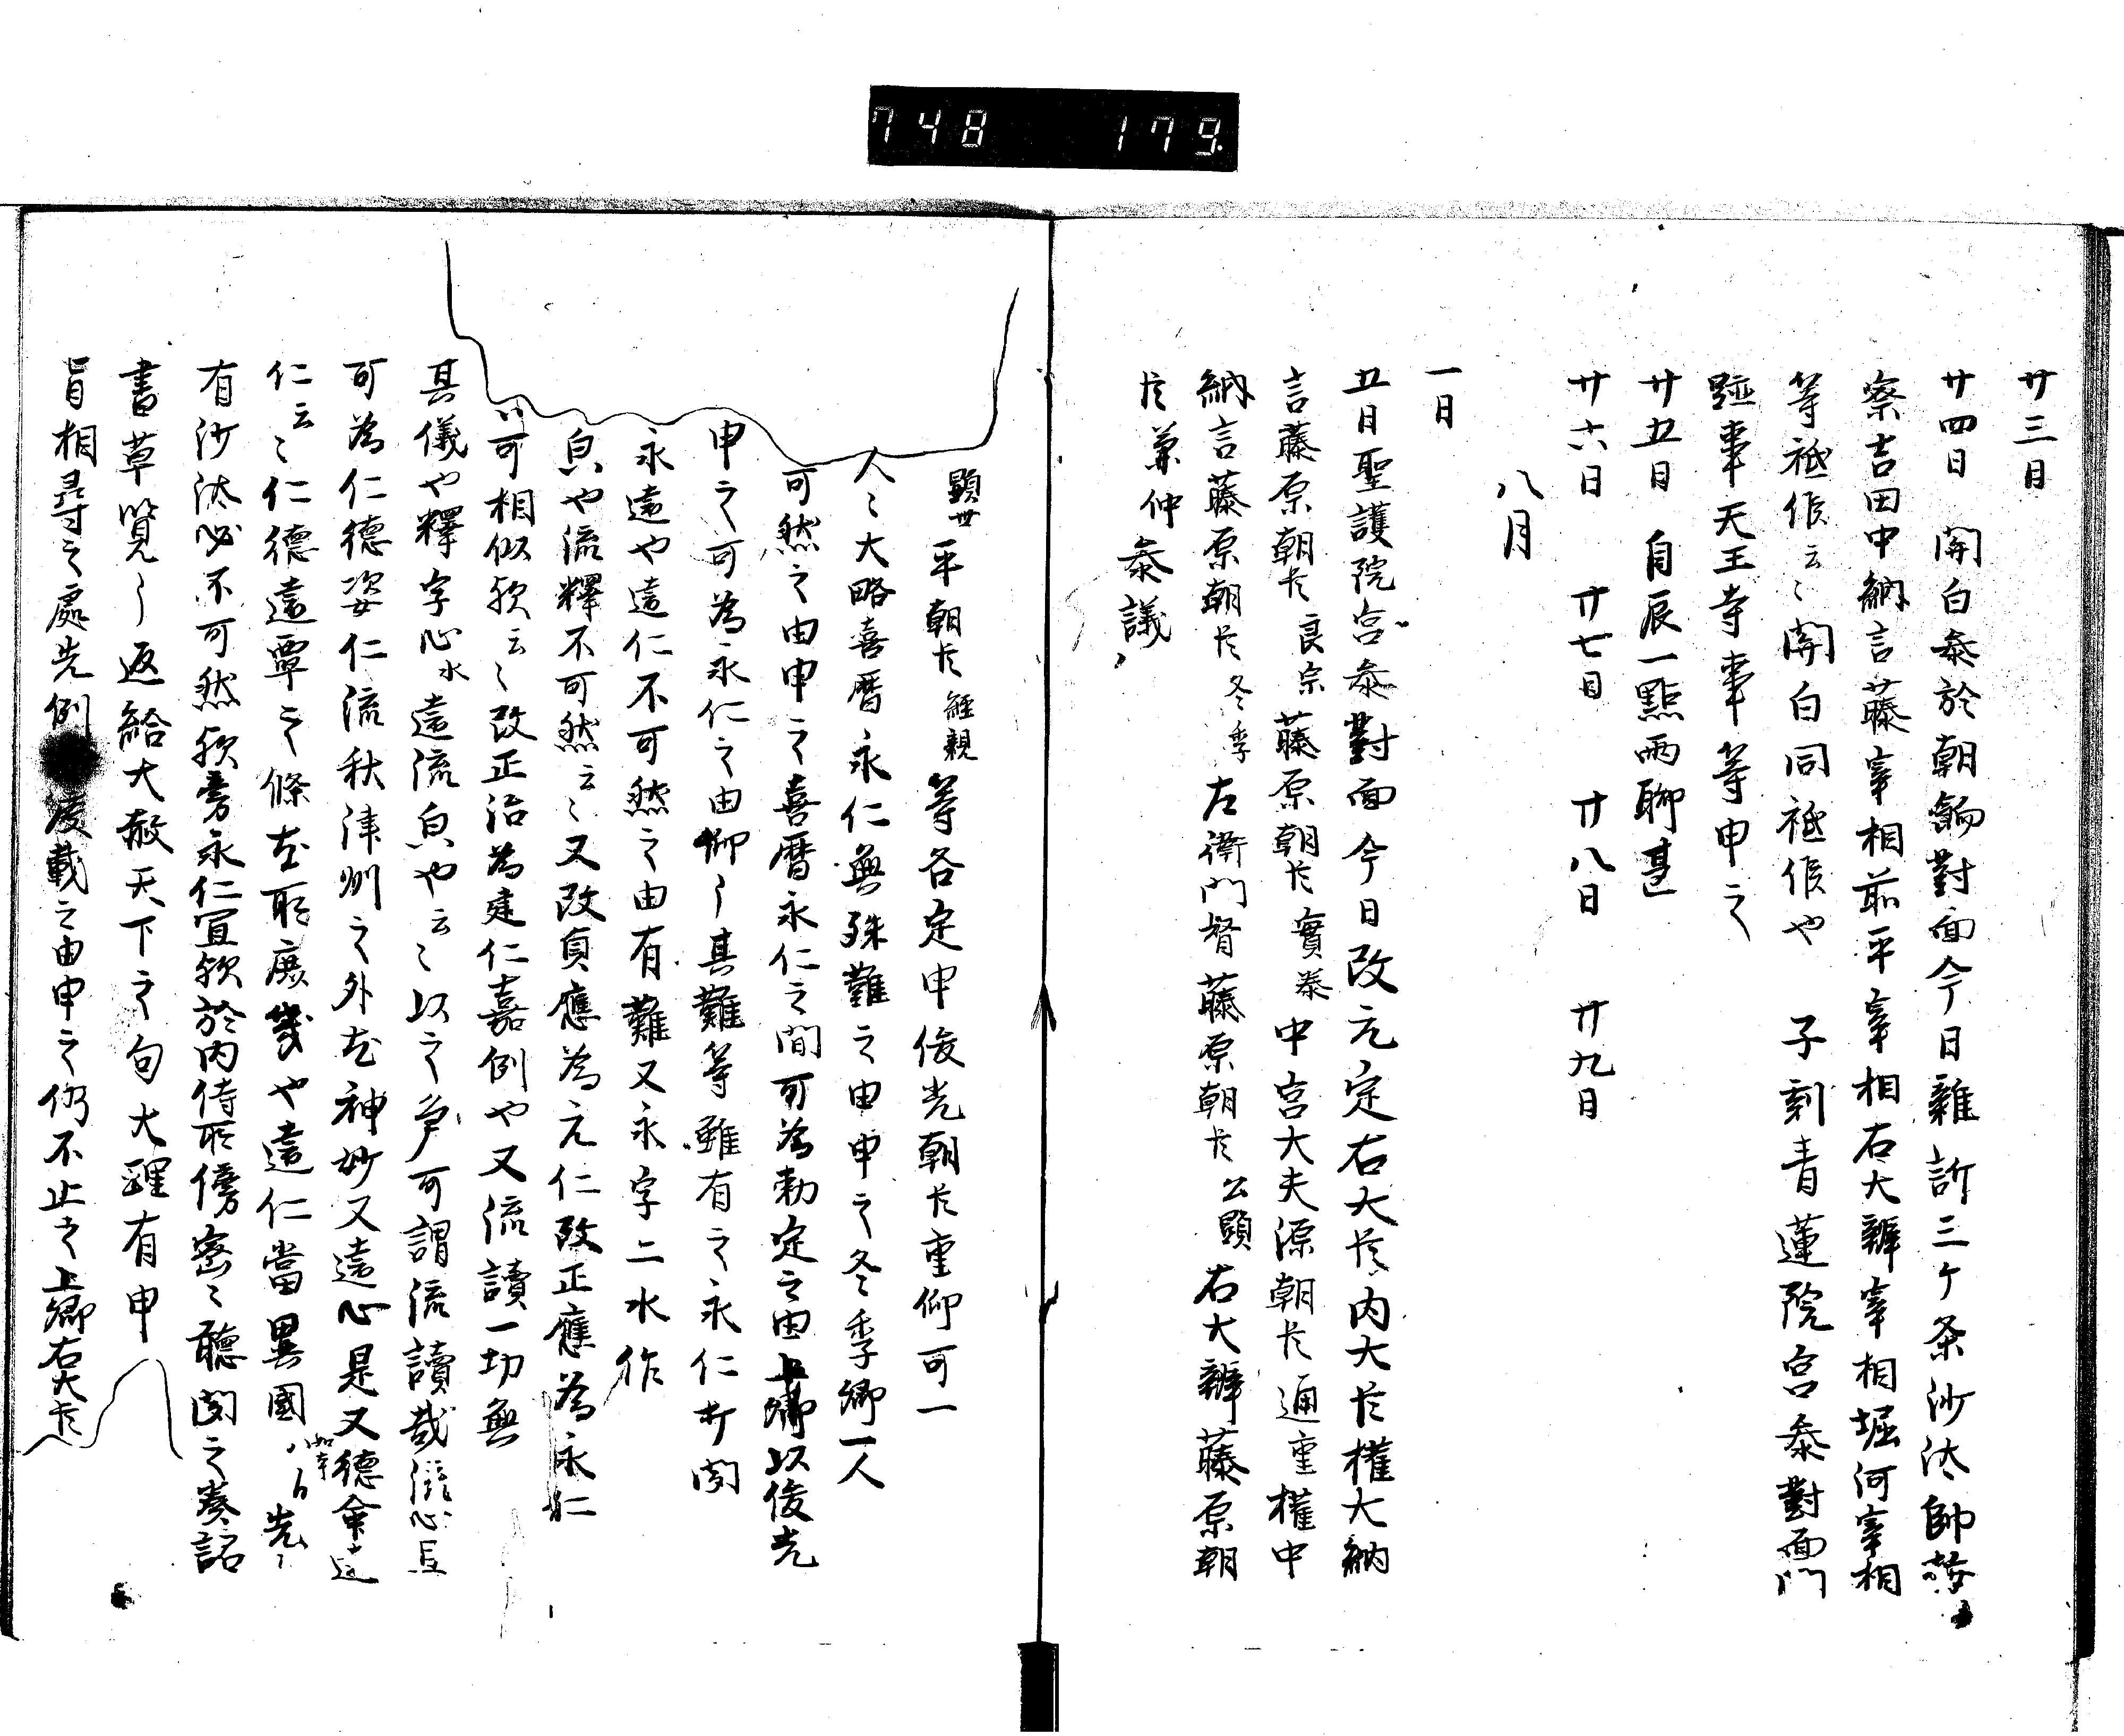 748 179.
廿三日
廿四日 関白参於朝餉對面今日雜訴三ケ条沙汰帥
察吉田中納言藤宰相前平宰相右大辨宰相堀河宰相
等祗候云々関白同祗候也 子刻青蓮院宮参對面門
跡事天王寺事等申之
廿五日 自辰一點雨聊甚
廿六日 廿七日 廿八日 廿九日
八月
一日
五日聖護院宮参對面今日改元定右大臣内大臣權大納
言藤原朝臣良宗藤原朝臣實泰中宮大夫源朝臣通重權中
納言藤原朝臣冬季左衛門督藤原朝臣公顯右大辨藤原朝
臣兼仲参議
顕世平朝臣経親等各定申俊光朝臣重仰可一
人々大略喜暦永仁無殊難之由申之冬季卿一人
可然之由申之喜暦永仁之間可為勅定之由上卿以俊光
申之可為永仁之由仰了其難等雖有之永仁者聞
永遠也遠仁不可然之由有難又永字二水作
負也流釋不可然云々又改貞應為元仁改正應為永仁
以可相似歟云々改正治為建仁嘉例也又流讀一切無
其儀也釋字心水遠流負也云々以之争可謂流讀哉
可為仁德姿仁流秋津洲之外尤神妙又遠心是又德
仁云々仁德遠覃之條尤所庶幾也遠仁當異國
有沙汰必不可然歟旁永仁宜歟於内侍所傍密々聽聞之奏詔
書草覧了返給大赦天下之句大理有申
旨相尋之處先例度載之由申之仍不止之上卿右大臣